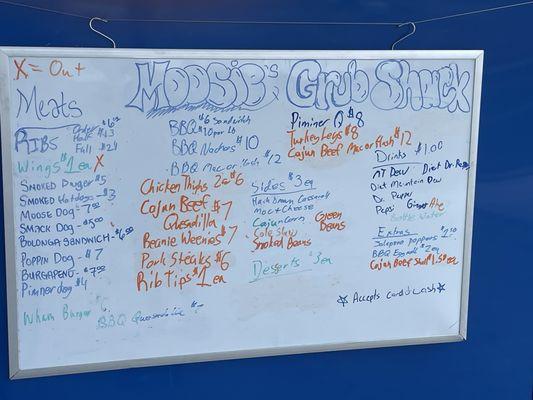 X = Out
Moosie's Grub Shack
Meats
RIBS Order $6.00
Half $13
Full $24
Wings $1 ea X
Smoked Danger $5
Smoked Hotdogs - $3
Moose Dog - 7.00
Smack Dog - $5.00
Bolonga Sandwich - $6.00
Poppin Dog - $7
Burgapeno - $7.00
Pimnerdog $4
Wham Burger
BBQ $6 Sandwich
$10 per lb
BBQ Nachos $10
BBQ Mac or Hash $12
Chicken Thighs 2 ea $6
Cajun Beef $7
Quesadilla
Beanie Weenies $7
Pork Steaks $6
Rib Tips $1 ea
BBQ Quesadilla
Sides $3 ea
Hash Brown Casserole
Mac & Cheese
Cajun Corn
Cole Slaw
Smoked Beans
Green Beans
Desserts $3 ea
Piminer Q $8
Turkey Legs $8
Cajun Beef Mac or Hash $12
Drinks $1.00
MT Dew Diet Dr. Pepper
Diet Mountain Dew
Dr. Pepper
Pepsi Ginger Ale
Bottle Water
Extras
Jalapeno poppers $1.50
BBQ Eggroll $2 ea
Cajun Beef Stuff $1.50 ea
☆ Accepts card & cash ☆